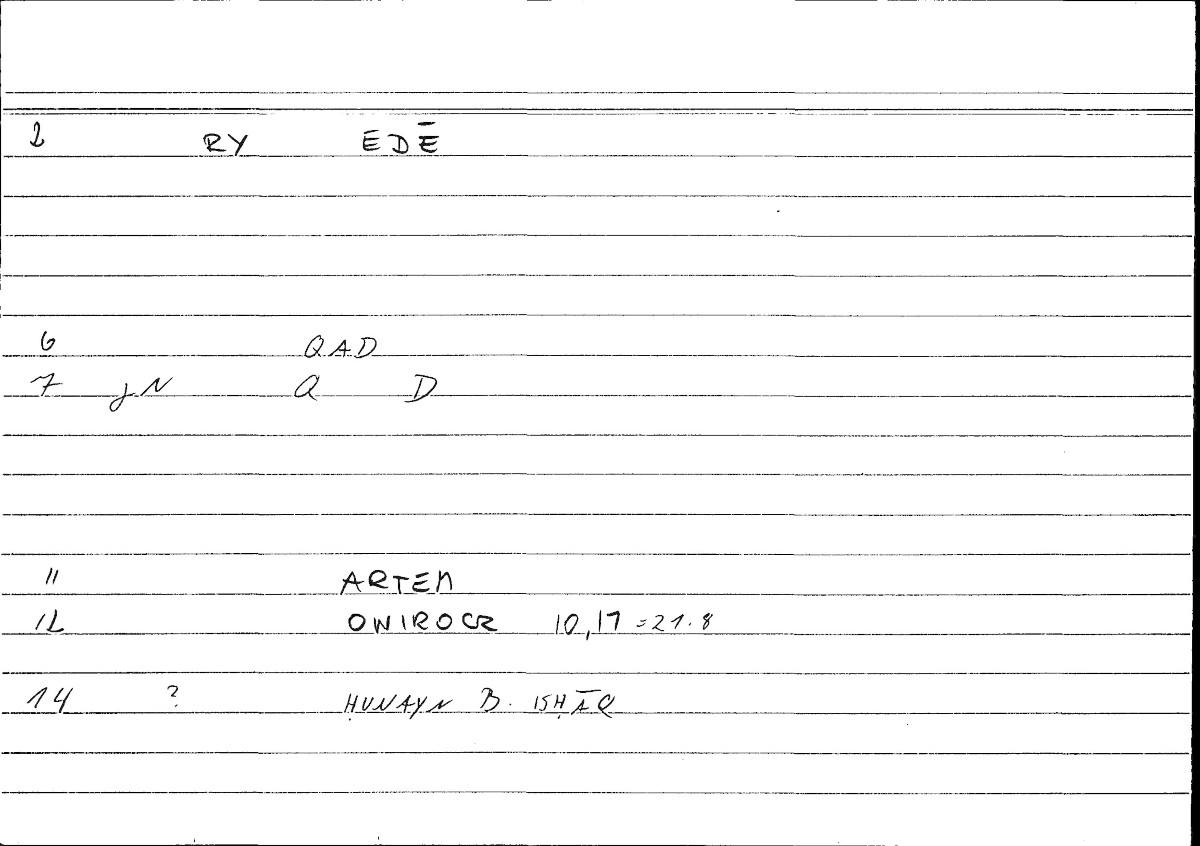 2 RY EDĒ
6 QAD
7 jN Q D
11 ARTEM
12 ONIROCR 10,17 = 21.8
14 ? ḤUNAYN B. ISḤĀQ